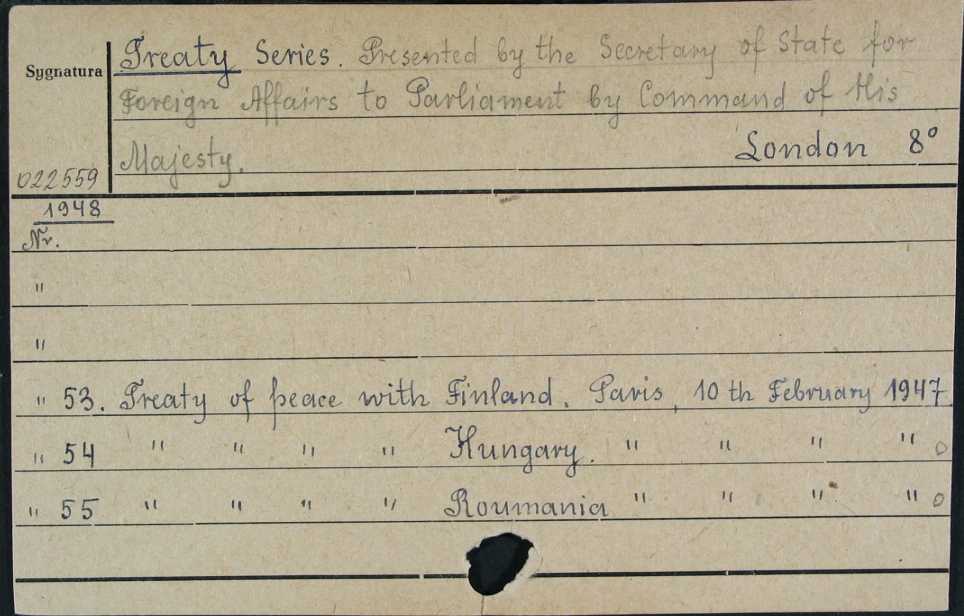 Treaty Series. Presented by the Secretary of State for
Sygnatura
Foreign Affairs to Parliament by Command of His
Majesty. London 8°
022559
1948
Nr.
"
"
" 53. Treaty of peace with Finland. Paris, 10 th February 1947.
" 54 " " " " Hungary. " " " " 0
" 55 " " " " Roumania " " " " 0